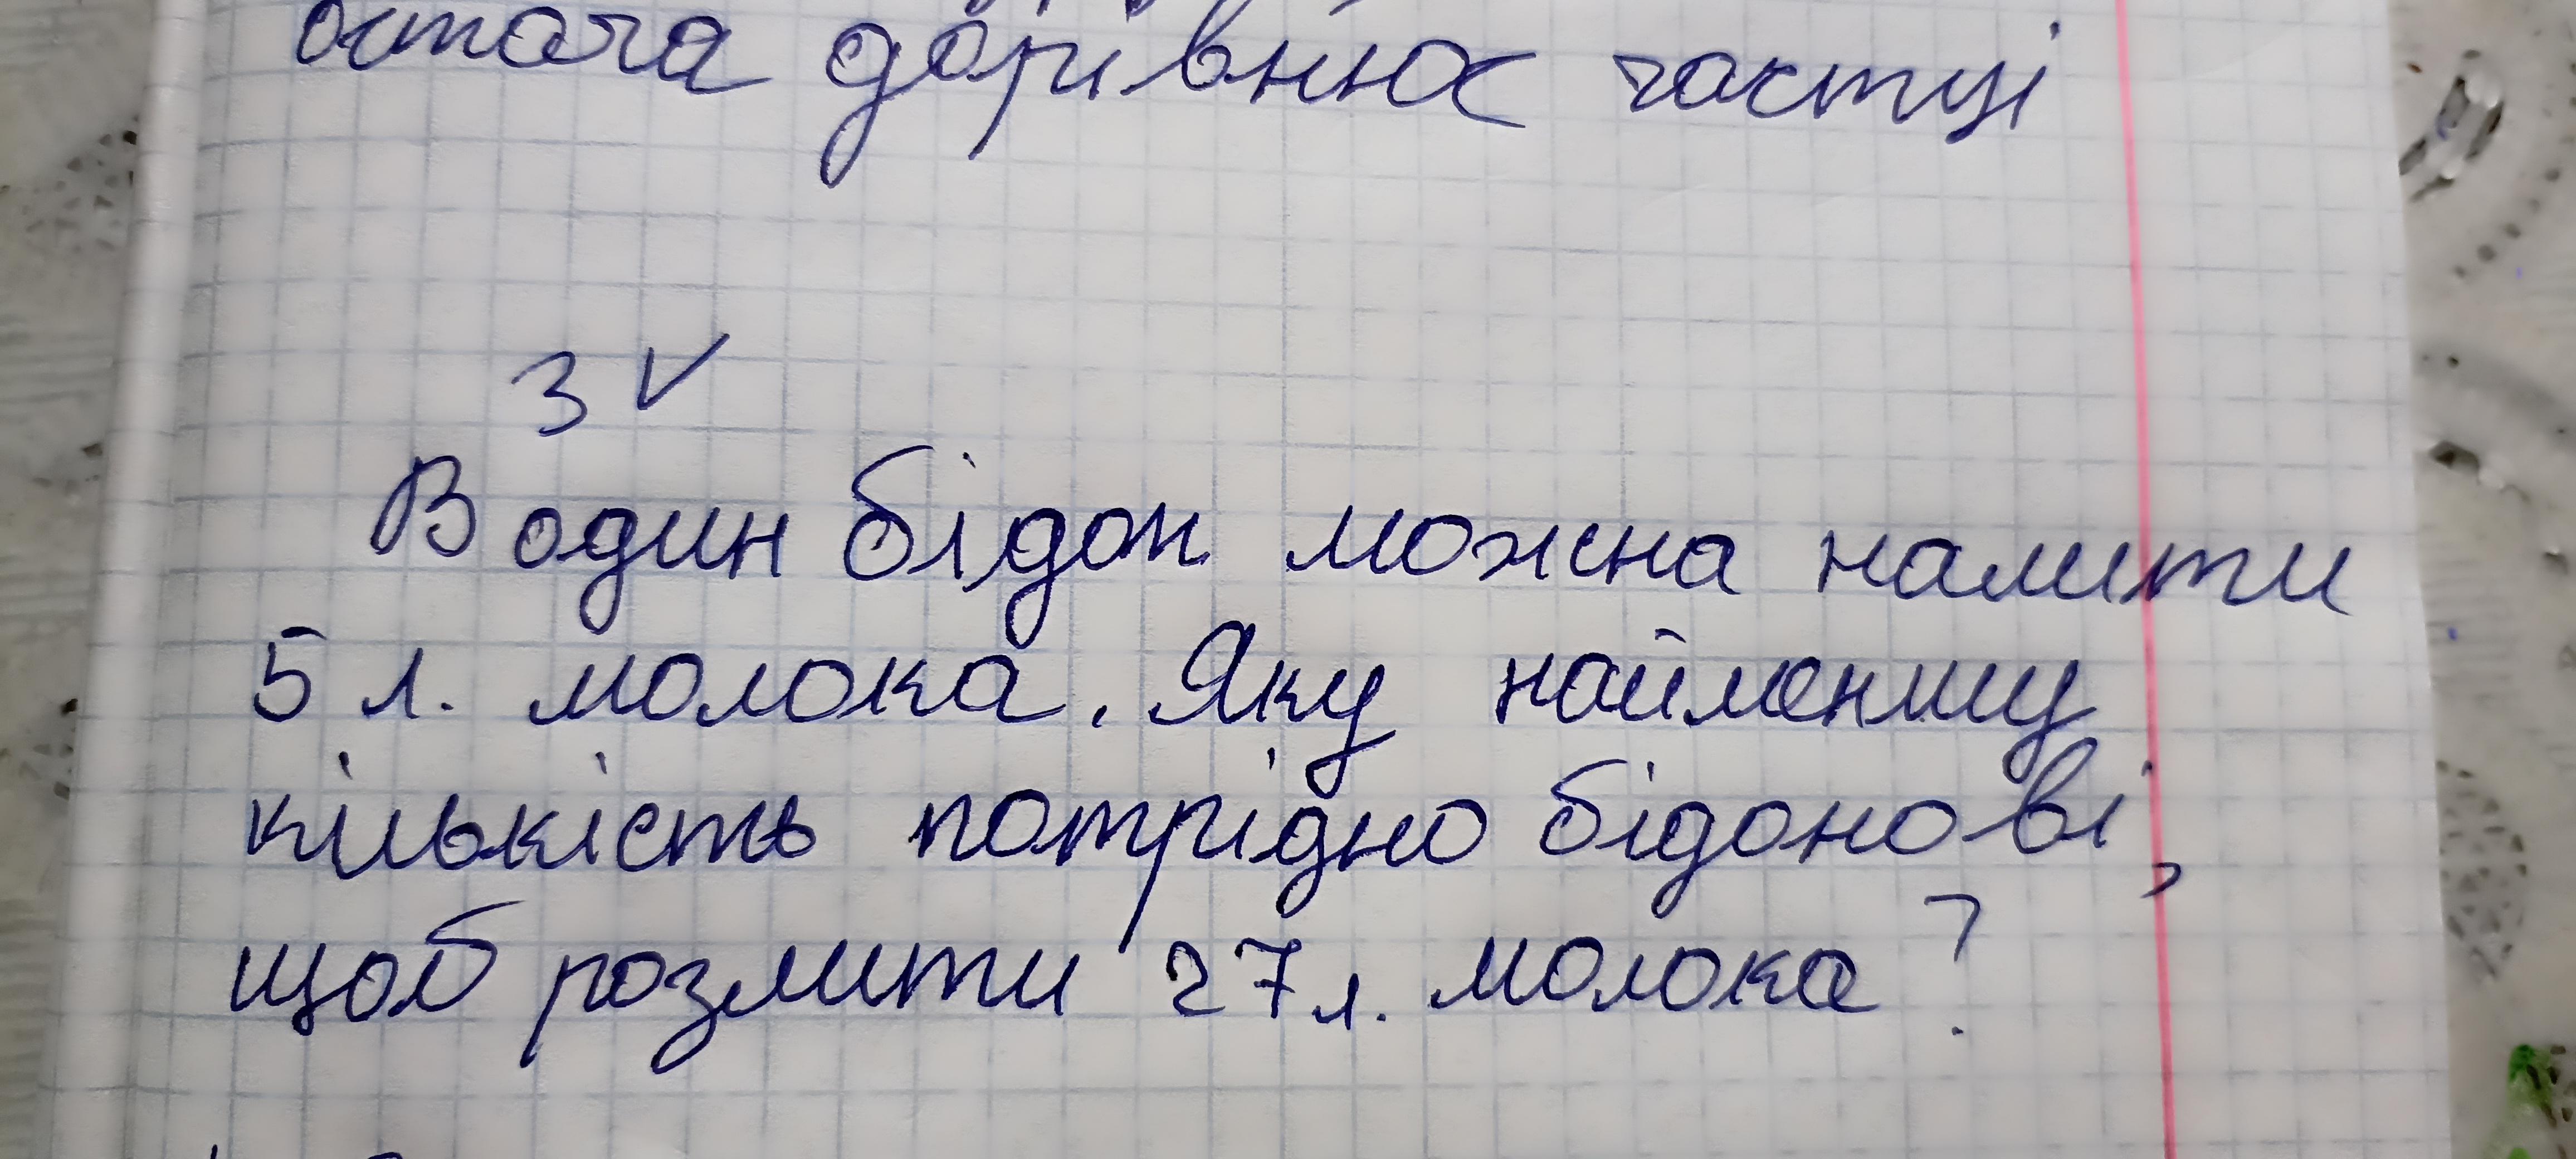 остача дорівнює частці
3 ✓
В один бідон можна налити
5 л. молока. Яку найменшу
кількість потрідно бідонові,
щоб розлити 27 л. молока?